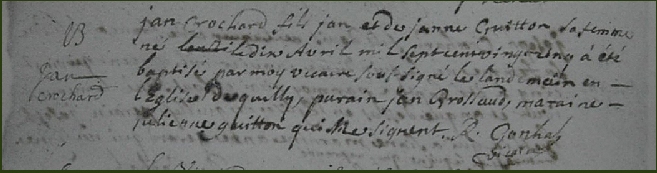 B
Jan
crochard
jan Crochard fils jan et de janne Guitton sa femme
né le dix Avril mil sept cent vingt cinq a été
baptisé par moy vicaire soussigné le landemain en
l'Eglise de quilly, parain jan Brossaud, maraine
julienne guitton qui ne signent